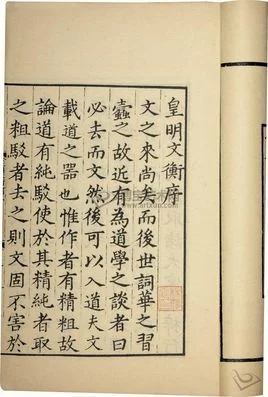 皇明文衡序
文之來尚矣而後世詞華之習
蠹之故近有為道學之談者曰
必去而文然後可以入道夫文
載道之器也惟作者有精粗故
論道有純駁使於其精純者取
之粗駁者去之則文固不害於